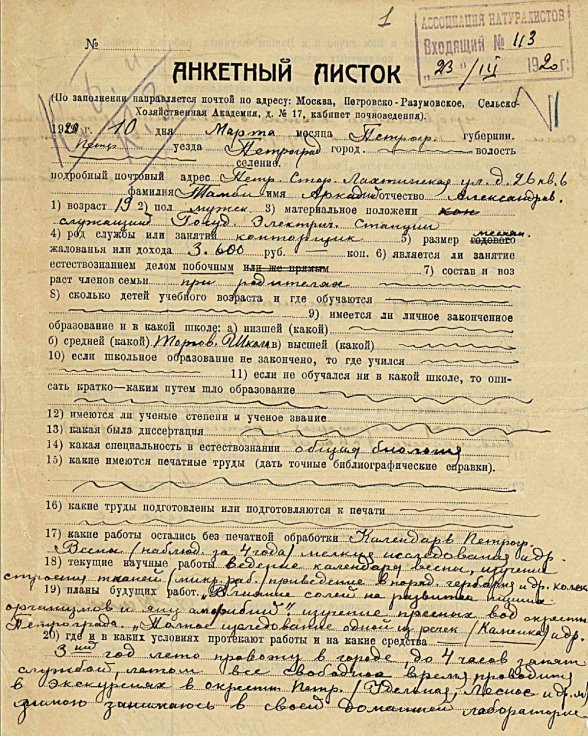 1
АССОЦИАЦИЯ НАТУРАЛИСТОВ
Входящий № 413
"23" /III 1920 г.
№
АНКЕТНЫЙ ЛИСТОК
(По заполнении направляется почтой по адресу: Москва, Петровско-Разумовское, Сельско-
Хозяйственная Академия, д. № 17, кабинет почвоведения).
1920 г. 10 дня Марта месяца Петрогр. губернии.
Петр. уезда Петроград город волость
селение.
подробный почтовый адрес Петр. Стор. Лахтинская ул. д. 26 кв. 6
фамилия Тамби имя Аркадий отчество Александров.
1) возраст 19 2) пол мужск. 3) материальное положени
служащий Госуд. Электрич. Станции
4) род службы или занятий конторщик 5) размер годового месячн.
жалованья или дохода 3.600 руб. коп. 6) является ли занятие
естествознанием делом побочным или же прямым 7) состав и воз
раст членов семьи при родителях
8) сколько детей учебного возраста и где обучаются
9) имеется ли личное законченное
образование и в какой школе: а) низшей (какой)
б) средней (какой) Торгов. Школа в) высшей (какой)
10) если школьное образование не закончено, то где учился
11) если не обучался ни в какой школе, то опи-
сать кратко—каким путем шло образование
12) имеются ли ученые степени и ученое звание
13) какая была диссертация
14) какая специальность в естествознании общая биология
15) какие имеются печатные труды (дать точные библиографические справки).
16) какие труды подготовлены или подготовляются к печати
17) какие работы остались без печатной обработки Календарь Петрогр.
Весны (наблюд. за 4 года) мелкия исследования и др.
18) текущие научные работы ведение календаря весны, изучение
строения тканей (микр. раб.) приведение в поряд. гербария и др. колек.
19) планы будущих работ. „Влияние солей на развитие низших
организмов и яиц амфибий": изучение пресных вод окрестн.
Петрограда. „Полное изследование одной из речек (Каменка) и др.
20) где и в каких условиях протекают работы и на какие средства
3ий год лето провожу в городе, до 4 часов занят
службой, летом все свободное время проводил
в экскурсиях в окрестн. Петр. (Удельная, Лесное и др. м)
зимою занимаюсь в своей домашней лаборатории